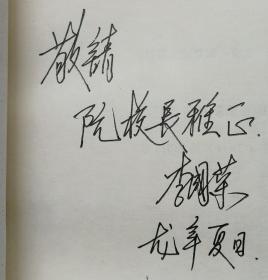 敬請
阮校長雅正.
李國荣
龙年夏日.